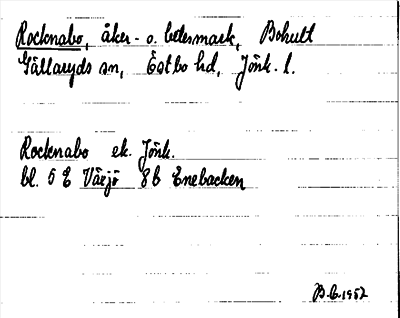 Rocknabo, åker- o. betesmark, Bohult
Gällaryds sn, Östbo hd, Jönk. l.
Rocknabo ek. Jönk.
bl. 5 E Växjö 8b Enebacken
B.G. 1952